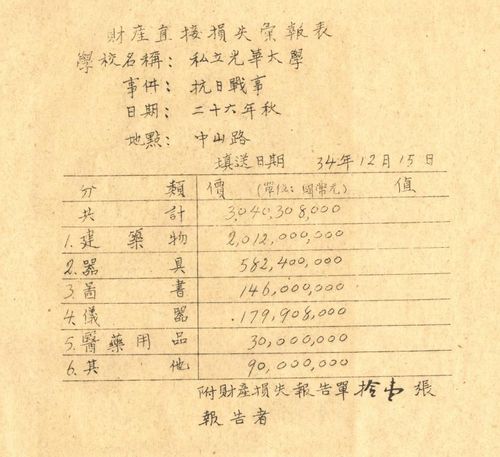 財產直接損失彙報表
學校名稱：私立光華大學
事件：抗日戰事
日期：二十六年秋
地點：中山路
填送日期 34年12月15日
分類 價（單位：國幣元）值
共計 3,040,308,000
1. 建築物 2,012,000,000
2. 器具 582,400,000
3. 圖書 146,000,000
4. 儀器 179,908,000
5. 醫藥用品 30,000,000
6. 其他 90,000,000
附財產損失報告單拾壹張
報告者